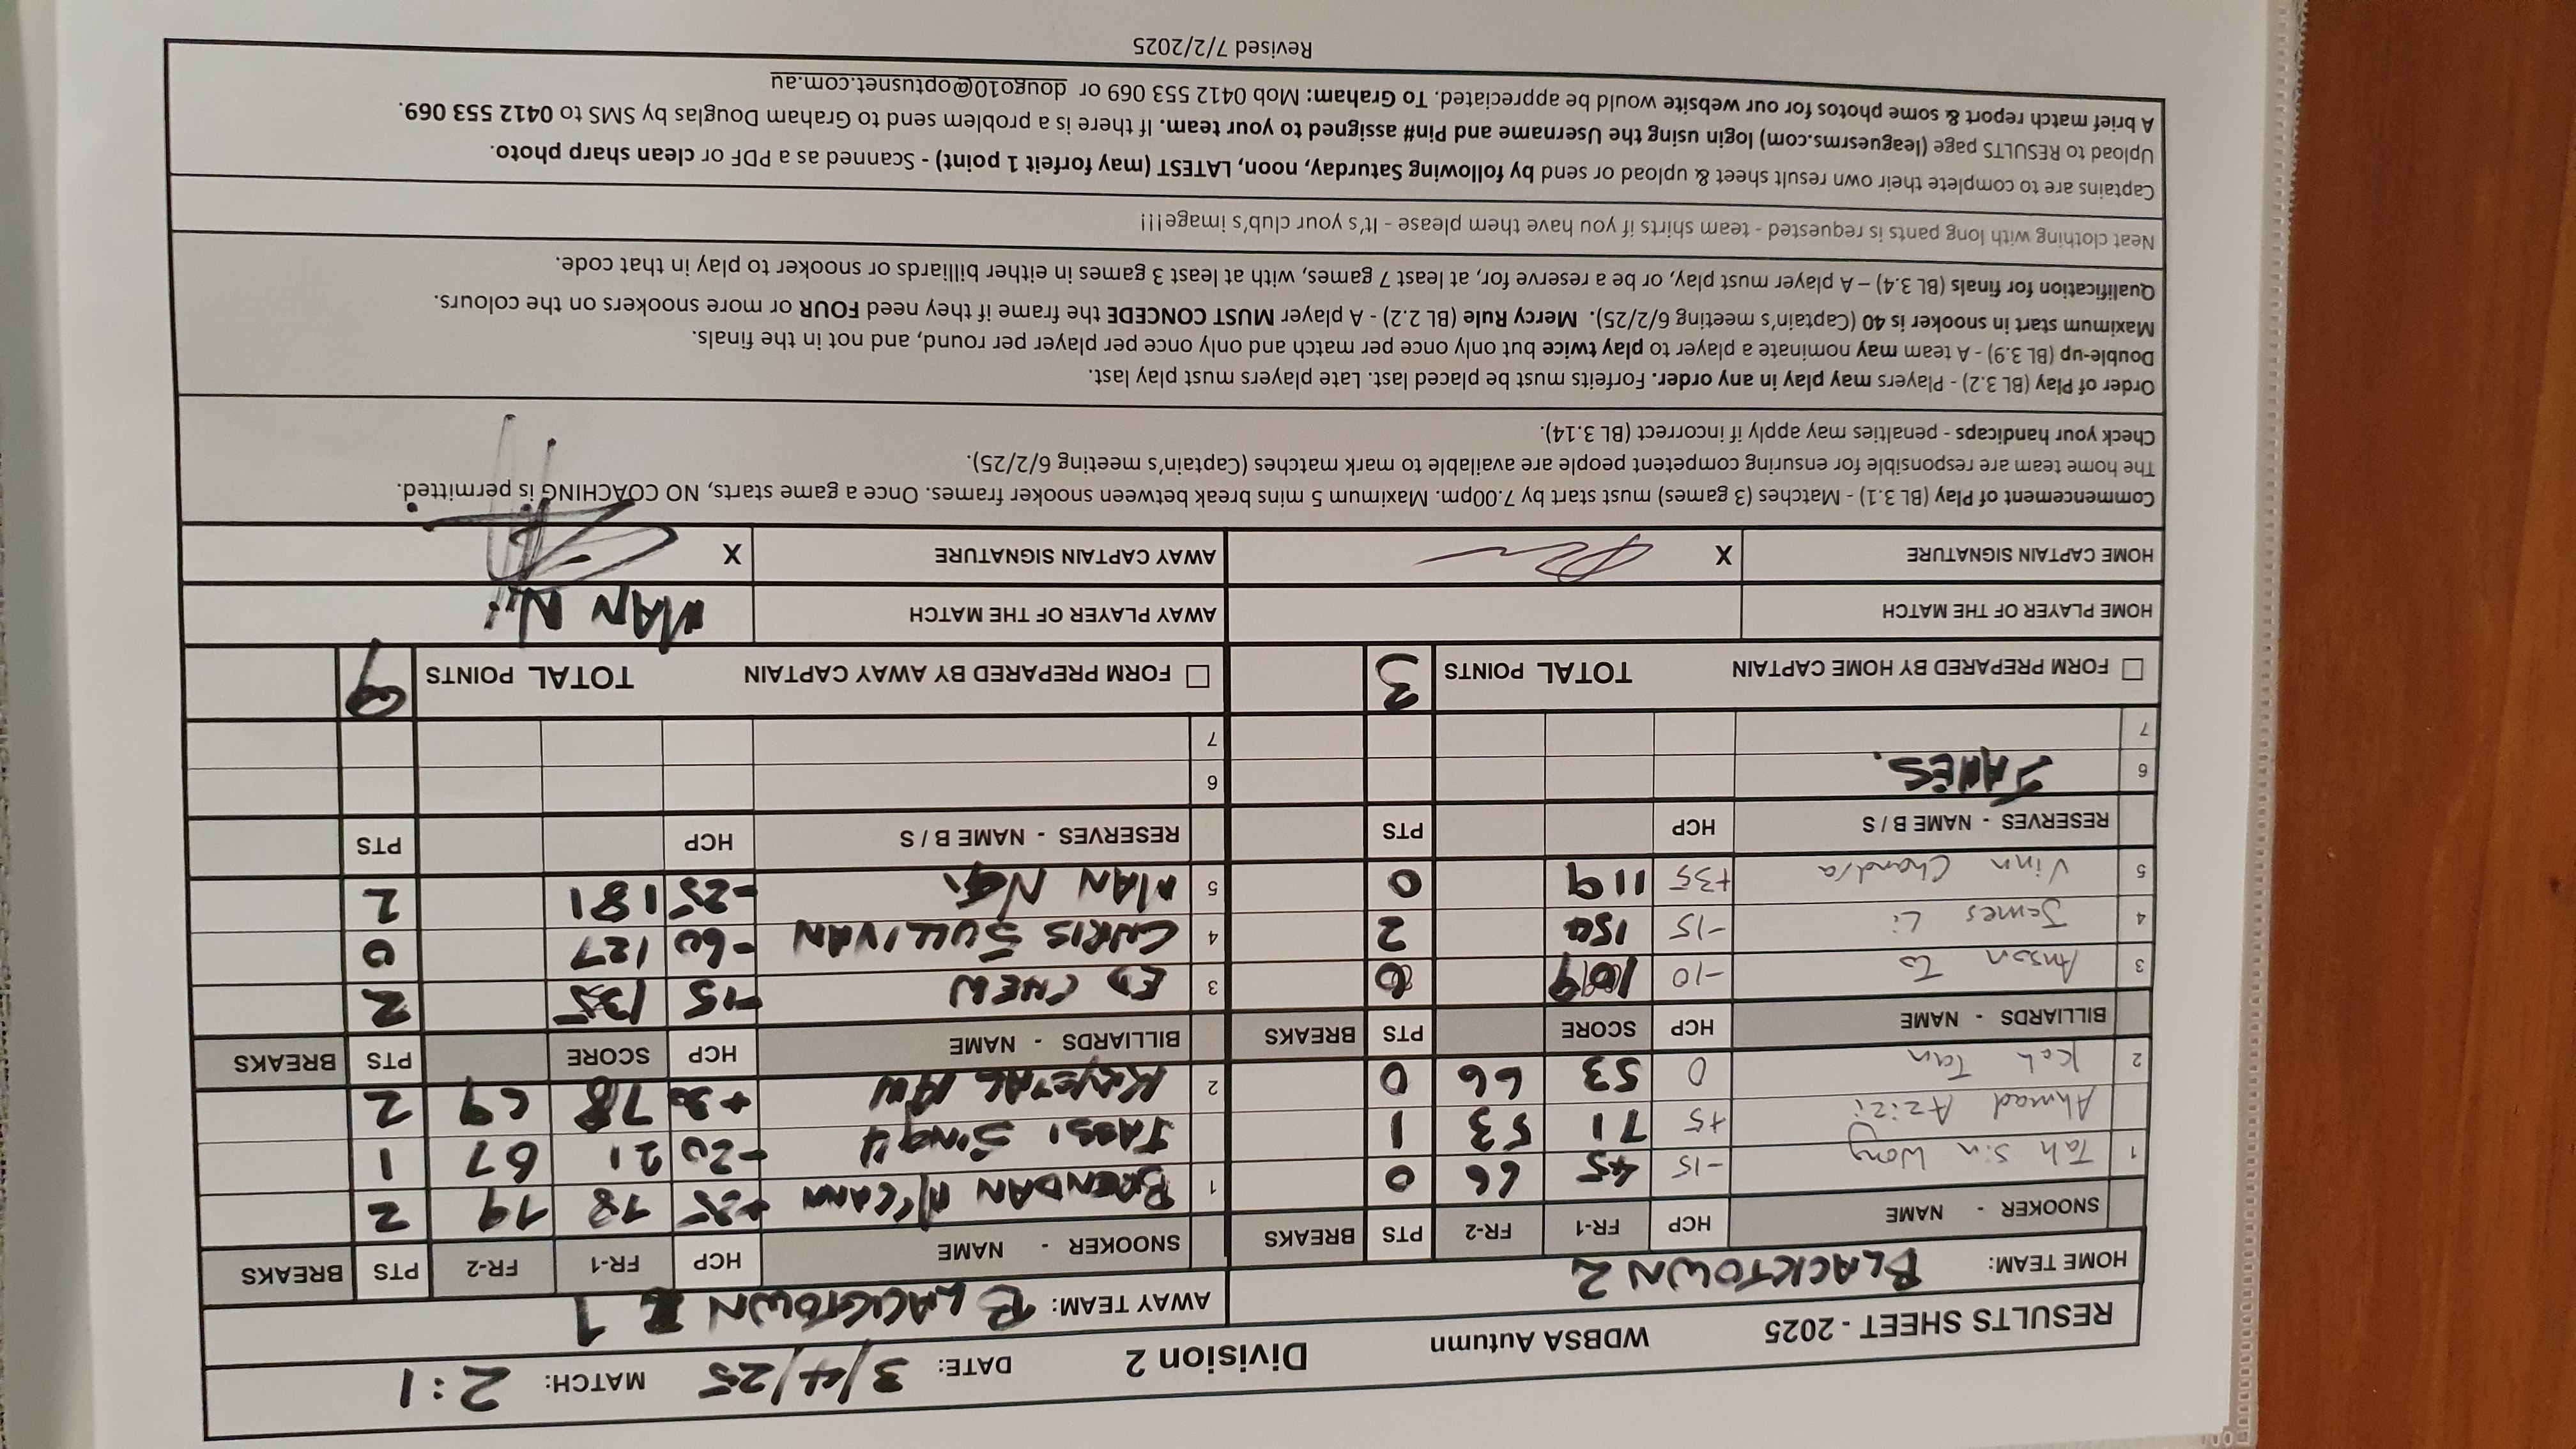 RESULTS SHEET - 2025 WDBSA Autumn Division 2 DATE: 3/4/25 MATCH: 2:1
HOME TEAM: BLACKTOWN 2 AWAY TEAM: BLACKTOWN 1
SNOOKER - NAME HCP FR-1 FR-2 PTS BREAKS SNOOKER - NAME HCP FR-1 FR-2 PTS BREAKS
1 Tah Sin Wong -15 45 66 0 1 BRENDAN McCANN +25 78 79 2
Ahmad Azizi +5 71 53 1 JASSI SINGH -20 21 67 1
2 Koh Tan 0 53 66 0 2 +30 78 69 2
BILLIARDS - NAME HCP SCORE PTS BREAKS BILLIARDS - NAME HCP SCORE PTS BREAKS
3 Anson To -10 109 0 3 ED CHEW -15 135 2
4 James Li -15 150 2 4 CHRIS SULLIVAN -60 127 0
5 Vinn Chandra +35 119 0 5 MAN NGI -25 181 2
RESERVES - NAME B / S HCP PTS RESERVES - NAME B / S HCP PTS
6 JAMES. 6
7 7
FORM PREPARED BY HOME CAPTAIN TOTAL POINTS 3 FORM PREPARED BY AWAY CAPTAIN TOTAL POINTS 9
HOME PLAYER OF THE MATCH AWAY PLAYER OF THE MATCH MAN Ni
HOME CAPTAIN SIGNATURE X AWAY CAPTAIN SIGNATURE X
Commencement of Play (BL 3.1) - Matches (3 games) must start by 7.00pm. Maximum 5 mins break between snooker frames. Once a game starts, NO COACHING is permitted.
The home team are responsible for ensuring competent people are available to mark matches (Captain's meeting 6/2/25).
Check your handicaps - penalties may apply if incorrect (BL 3.14).
Order of Play (BL 3.2) - Players may play in any order. Forfeits must be placed last. Late players must play last.
Double-up (BL 3.9) - A team may nominate a player to play twice but only once per match and only once per player per round, and not in the finals.
Maximum start in snooker is 40 (Captain's meeting 6/2/25). Mercy Rule (BL 2.2) - A player MUST CONCEDE the frame if they need FOUR or more snookers on the colours.
Qualification for finals (BL 3.4) – A player must play, or be a reserve for, at least 7 games, with at least 3 games in either billiards or snooker to play in that code.
Neat clothing with long pants is requested - team shirts if you have them please - It's your club's image!!!
Captains are to complete their own result sheet & upload or send by following Saturday, noon, LATEST (may forfeit 1 point) - Scanned as a PDF or clean sharp photo.
Upload to RESULTS page (leaguesrms.com) login using the Username and Pin# assigned to your team. If there is a problem send to Graham Douglas by SMS to 0412 553 069.
A brief match report & some photos for our website would be appreciated. To Graham: Mob 0412 553 069 or dougo10@optusnet.com.au
Revised 7/2/2025